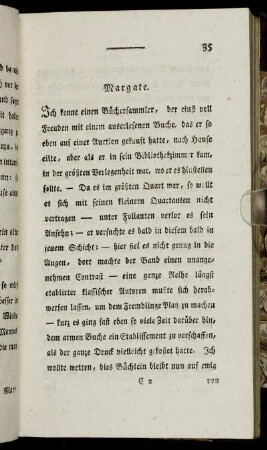 35
Margate.
Ich kenne einen Büchersammler, der einst voll
Freuden mit einem auserlesenen Buche, das er so
eben auf einer Auction gekauft hatte, nach Hause
eilte, aber als er in sein Bibliothekzimmer kam,
in der größten Verlegenheit war, wo er es hinstellen
sollte. — Da es im größten Quart war, so wollt
es sich mit seinen kleinern Quartanten nicht
vertragen — unter Folianten verlor es sein
Ansehn; — er versuchte es bald in diesem bald in
jenem Schicht; — hier fiel es nicht genug in die
Augen, dort machte der Band einen unange-
nehmen Contrast — eine ganze Reihe längst
etablirter klassischer Autoren mußte sich herab-
werfen lassen, um dem Fremdlinge Platz zu machen
— kurz es ging fast eben so viele Zeit darüber hin,
dem armen Buche ein Etablissement zu verschaffen,
als der ganze Druck vielleicht gekostet hatte. Ich
wollte wetten, dies Büchlein bleibt nun auf ewig
von